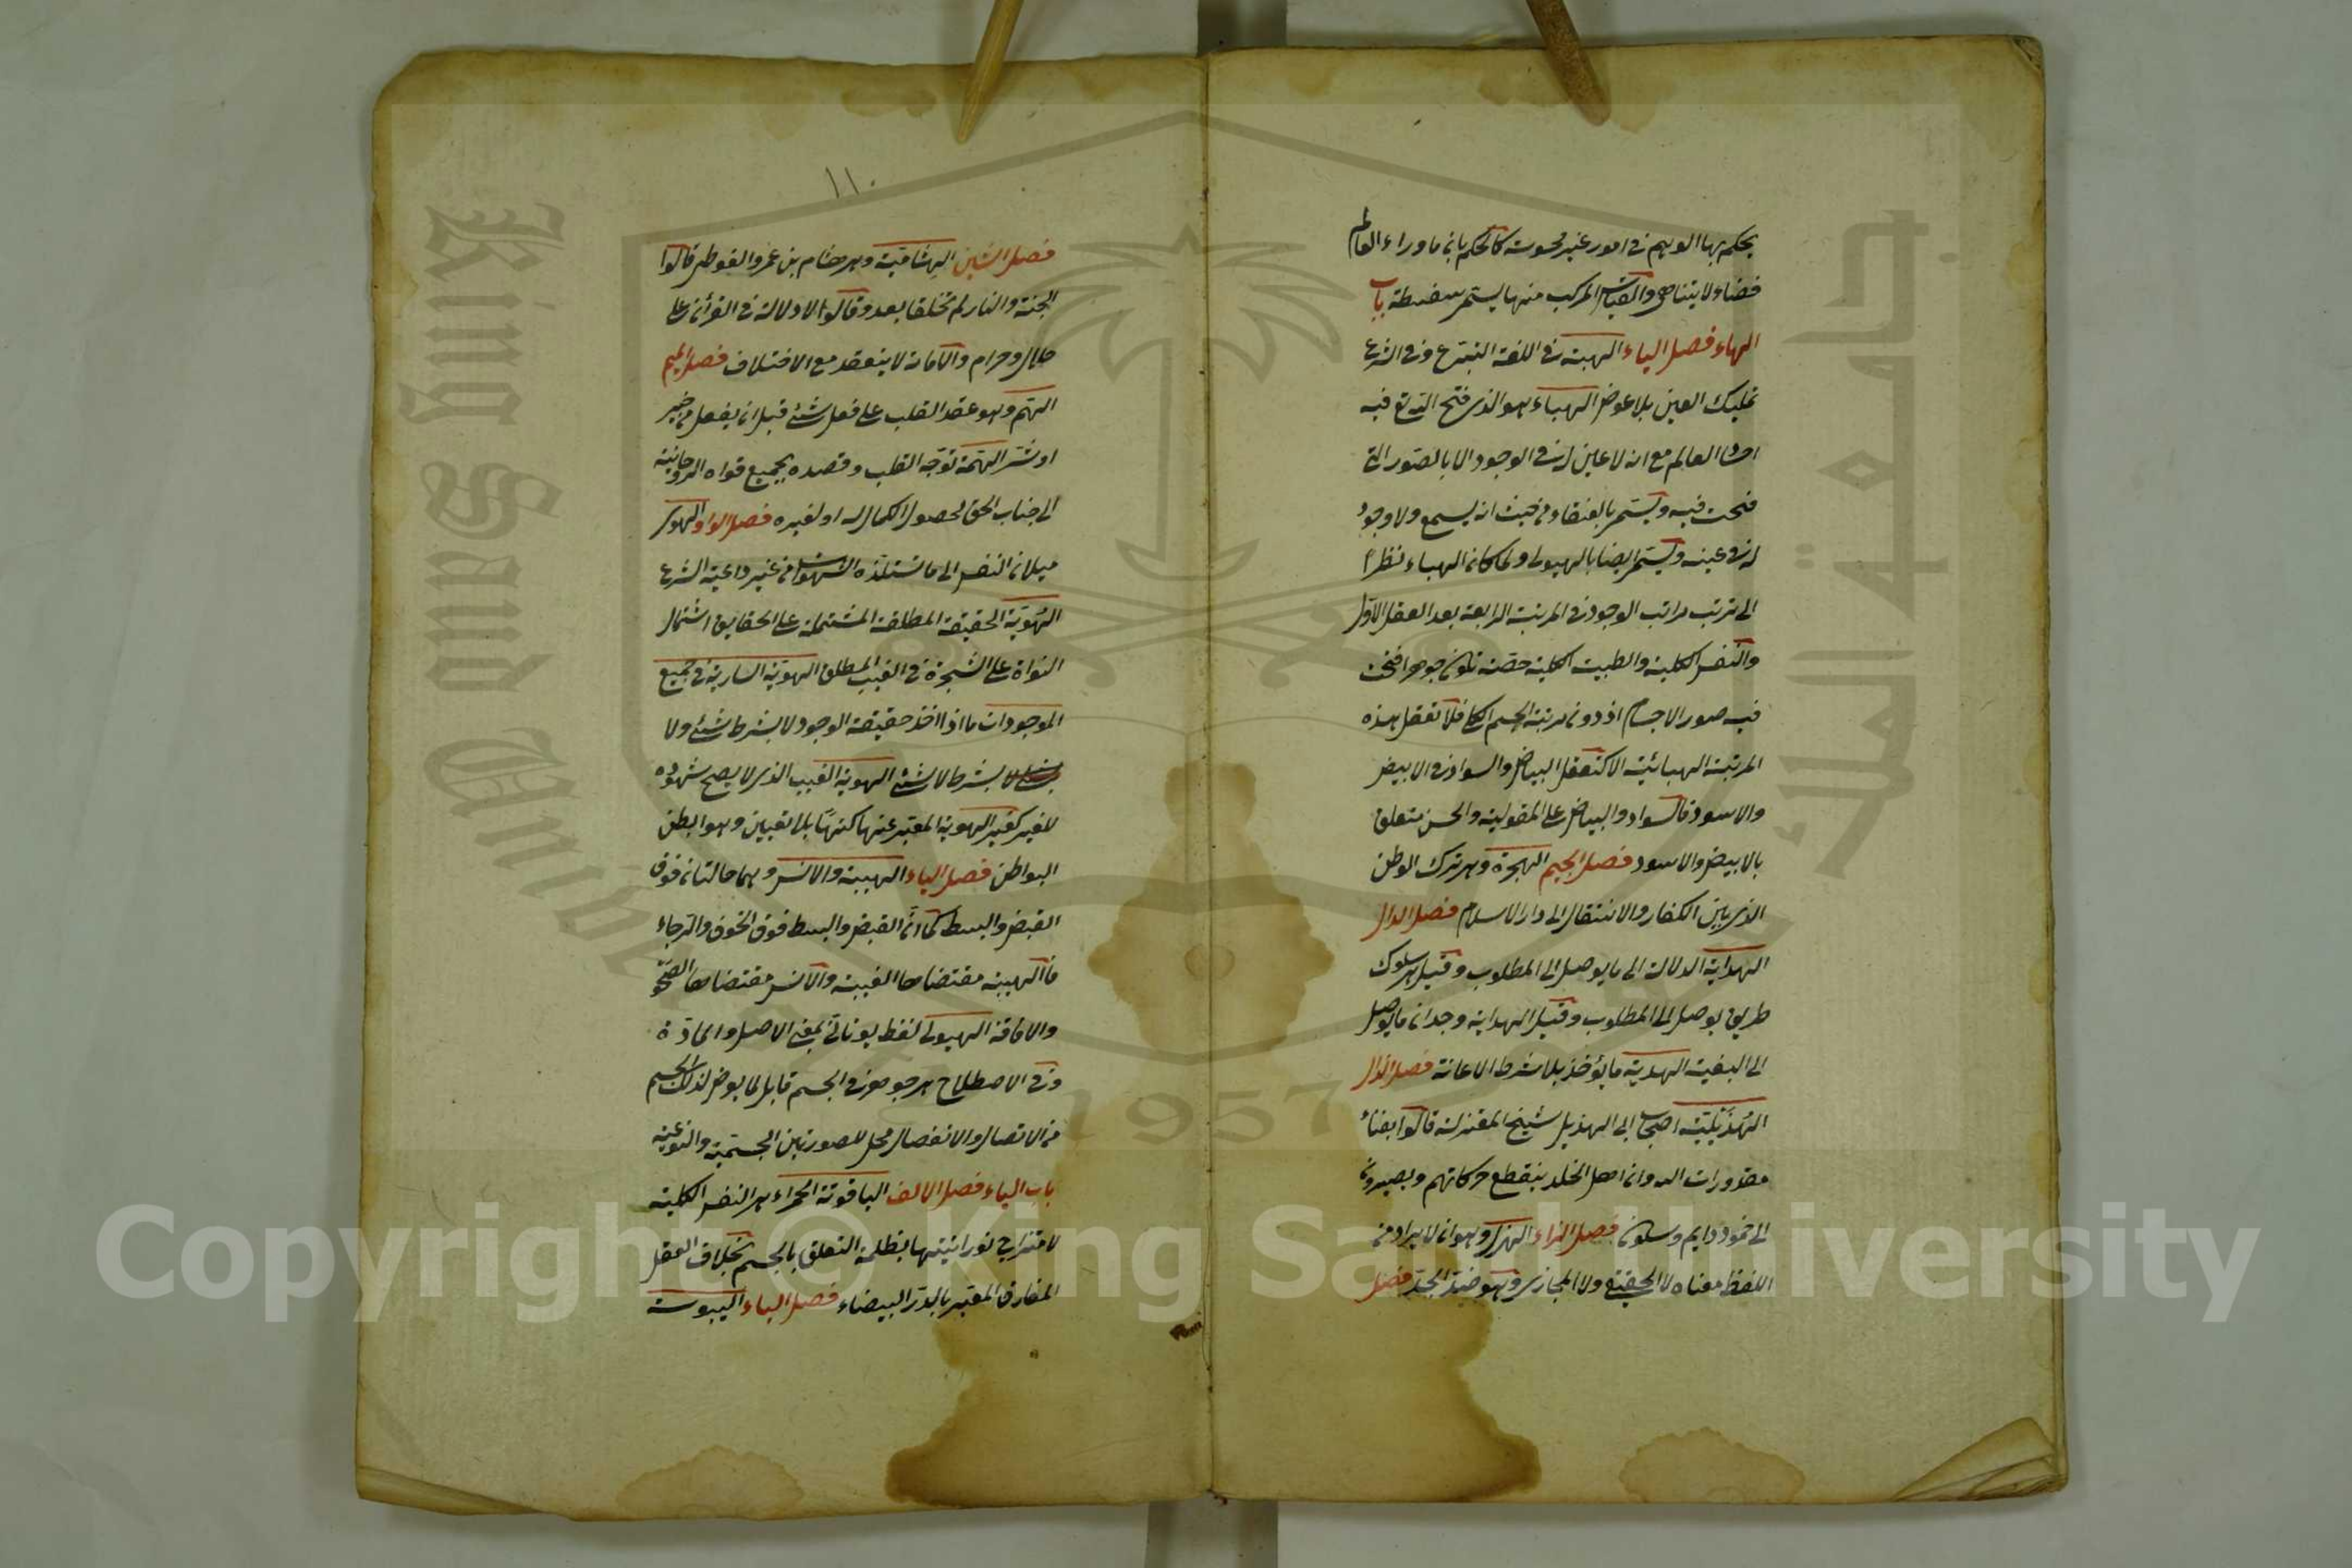 يحكم بها الوهم في امور غير محسوسة كالحكم بان ما وراء العالم
فضاء لا يتناهى والقياس المركب منها يسمى سفسطة باب
الهاء فصل الباء الهبة في اللغة التبرع وفي الشرع
تمليك العين بلا عوض الهباء هو الذي فتح الله تع فيه
اجسا العالم مع انه لا عين له في الوجود الا بالصور التي
فتحت فيه ويسمى بالعنقاء من حيث انه يسمع ولا وجود
له في عينه ويسمى ايضا بالهيولى ولما كان الهباء نظرا
الى ترتيب مراتب الوجود في المرتبة الرابعة بعد العقل الاول
والنفس الكلية والطبيعة الكلية خصه بكونه جوهرا فتحت
فيه صور الاجسام اذ دون مرتبته الجسم الكلي فلا تعقل هذه
المرتبة الهبائية الا كتعقل البياض والسواد في الابيض
والاسود فالسواد والبياض على المقولية والحس متعلق
بالابيض والاسود فصل الجيم الهجرة وهي ترك الوطن
الذي بين الكفار والانتقال الى دار الاسلام فصل الدال
الهداية الدلالة الى ما يوصل الى المطلوب وقيل هي سلوك
طريق يوصل الى المطلوب وقيل الهداية وجدان ما يوصل
الى البغية الهدية ما يؤخذ بلا شرط الاعانة فصل الذال
الهذيلية اصحاب ابي الهذيل شيخ المعتزلة قالوا بفناء
مقدورات الله وان اهل الخلد ينقطع حركاتهم ويصيرون
الى خمود دايم وسكون فصل الزاء الهزل وهو ان لا يراد من
اللفظ معناه لا الحقيقي ولا المجازي وهو ضد الجد فصل
١١٠
فصل الشين الهشامية وهم هشام بن عمرو الفوطي قالوا
الجنة والنار لم تخلقا بعد وقالوا لا دلالة في القرآن على
حلال وحرام والامامة لا ينعقد مع الاختلاف فصل الميم
الهم وهو عقد القلب على فعل شئ قبل ان يفعل من خير
او شر الهمة توجه القلب وقصده بجميع قواه الروحانية
الى جناب الحق لحصول الكمال له او لغيره فصل الواو الهوى
ميلان النفس الى ما تستلذه الشهوات من غير داعية الشرع
الهوية الحقيقة المطلقة المشتملة على الحقايق اشتمال
النواة على الشجرة في الغيب المطلق الهوية السارية في جميع
الموجودات ما اذا اخذ حقيقة الوجود لا بشرط شئ ولا
بشرط لا شئ الهوية الغيب الذي لا يصح شهوده
للغير كغيب الهوية المعبر عنها كنها بلا تعين وهو ابطن
البواطن فصل الياء الهيبة والانس وهما حالتان فوق
القبض والبسط كما ان القبض والبسط فوق الخوف والرجاء
فالهيبة مقتضاها الغيبة والانس مقتضاها الصحو
والافاقة الهيولى لفظ يوناني بمعنى الاصل والمادة
وفي الاصطلاح هي جوهر في الجسم قابل لما يعرض لذلك الجسم
من الاتصال والانفصال محل للصورتين الجسمية والنوعية
باب الياء فصل الالف الياقوتة الحمراء هي النفس الكلية
لامتزاج نورانيتها بظلمة التعلق بالجسم بخلاف العقل
المفارق المعبر بالدر البيضاء فصل الباء اليبوست